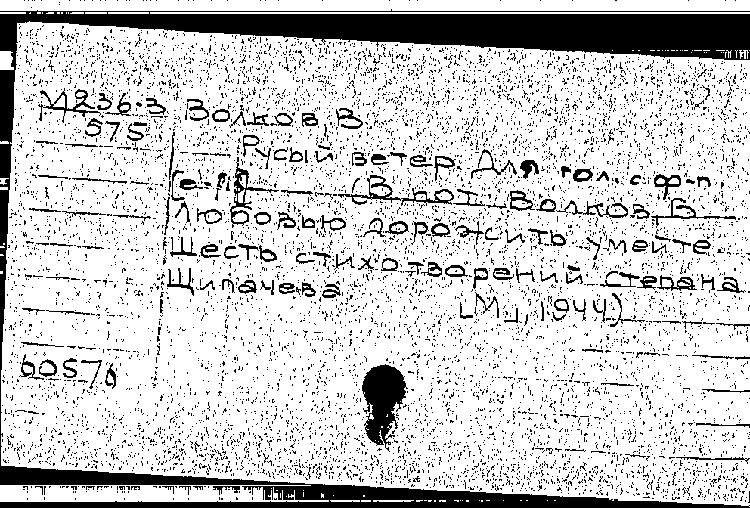 М236.3 Волков, В.
575
Русый ветер. Для гол. с ф-п.
[e-moll] (В нот. Волков, В.
Любовью дорожить умейте.
Шесть стихотворений Степана
Щипачева. [М], 1944)
60570